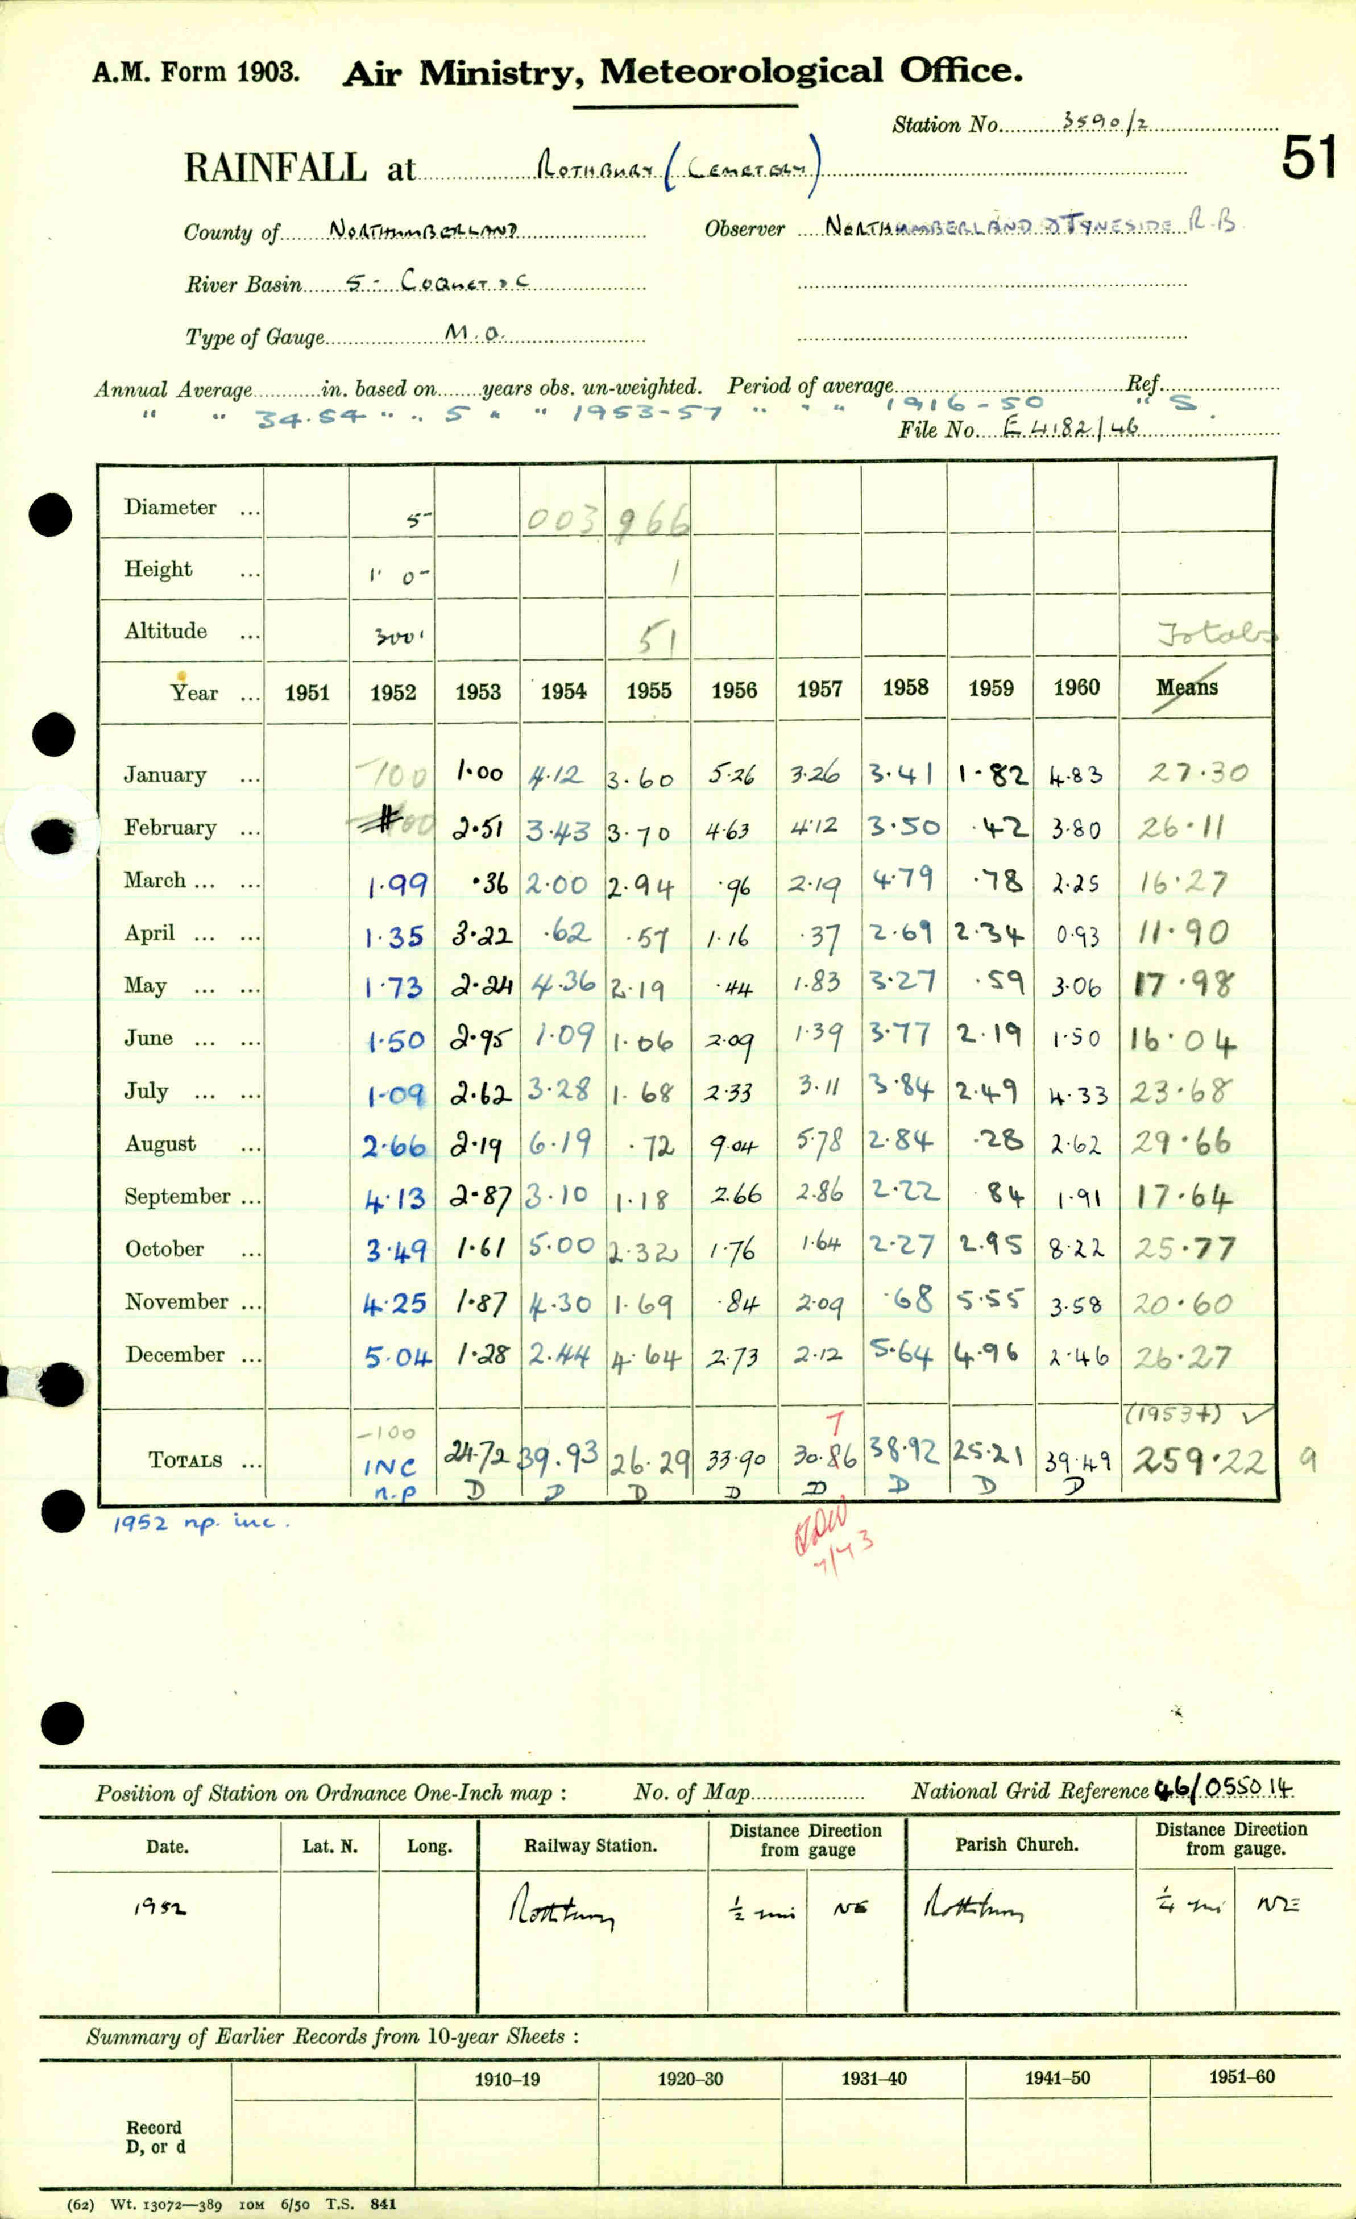 A.M. Form 1903. Air Ministry, Meteorological Office.
Station No. 3590/2
51
RAINFALL at ROTHBURY (CEMETERY)
County of NORTHUMBERLAND Observer NORTHUMBERLAND & TYNESIDE R.B
River Basin 5 - COQUET & C
Type of Gauge M.O.
Annual Average in. based on years obs. un-weighted. Period of average Ref.
" " 34.54 " " 5 " " 1953-57 " " " 1916-50 " S.
File No. E 4182/46
Diameter ... 5" 003 966
Height ... 1' 0" 1
Altitude ... 300' 51 Totals
Year ... 1951 1952 1953 1954 1955 1956 1957 1958 1959 1960 Means
January ... -100 1.00 4.12 3.60 5.26 3.26 3.41 1.82 4.83 27.30
February ... 2.51 3.43 3.70 4.63 4.12 3.50 .42 3.80 26.11
March ... ... 1.99 .36 2.00 2.94 .96 2.19 4.79 .78 2.25 16.27
April ... ... 1.35 3.22 .62 .57 1.16 .37 2.69 2.34 0.93 11.90
May ... ... 1.73 2.24 4.36 2.19 .44 1.83 3.27 .59 3.06 17.98
June ... ... 1.50 2.95 1.09 1.06 2.09 1.39 3.77 2.19 1.50 16.04
July ... ... 1.09 2.62 3.28 1.68 2.33 3.11 3.84 2.49 4.33 23.68
August ... 2.66 2.19 6.19 .72 9.04 5.78 2.84 .28 2.62 29.66
September ... 4.13 2.87 3.10 1.18 2.66 2.86 2.22 84 1.91 17.64
October ... 3.49 1.61 5.00 2.32 1.76 1.64 2.27 2.95 8.22 25.77
November ... 4.25 1.87 4.30 1.69 .84 2.09 .68 5.55 3.58 20.60
December ... 5.04 1.28 2.44 4.64 2.73 2.12 5.64 4.96 2.46 26.27
-100 7 (1953+) ✓
TOTALS ... INC 24.72 39.93 26.29 33.90 30.86 38.92 25.21 39.49 259.22 9
n.p D D D D D D D D
1952 np. inc.
7/73
Position of Station on Ordnance One-Inch map : No. of Map National Grid Reference 46/055014
Date. Lat. N. Long. Railway Station. Distance from gauge Direction Parish Church. Distance from gauge. Direction
1952 Rothbury ½ mi NE Rothbury ¼ mi NE
Summary of Earlier Records from 10-year Sheets :
1910–19 1920–30 1931–40 1941–50 1951–60
Record
D, or d
(62) Wt. 13072—389 10M 6/50 T.S. 841